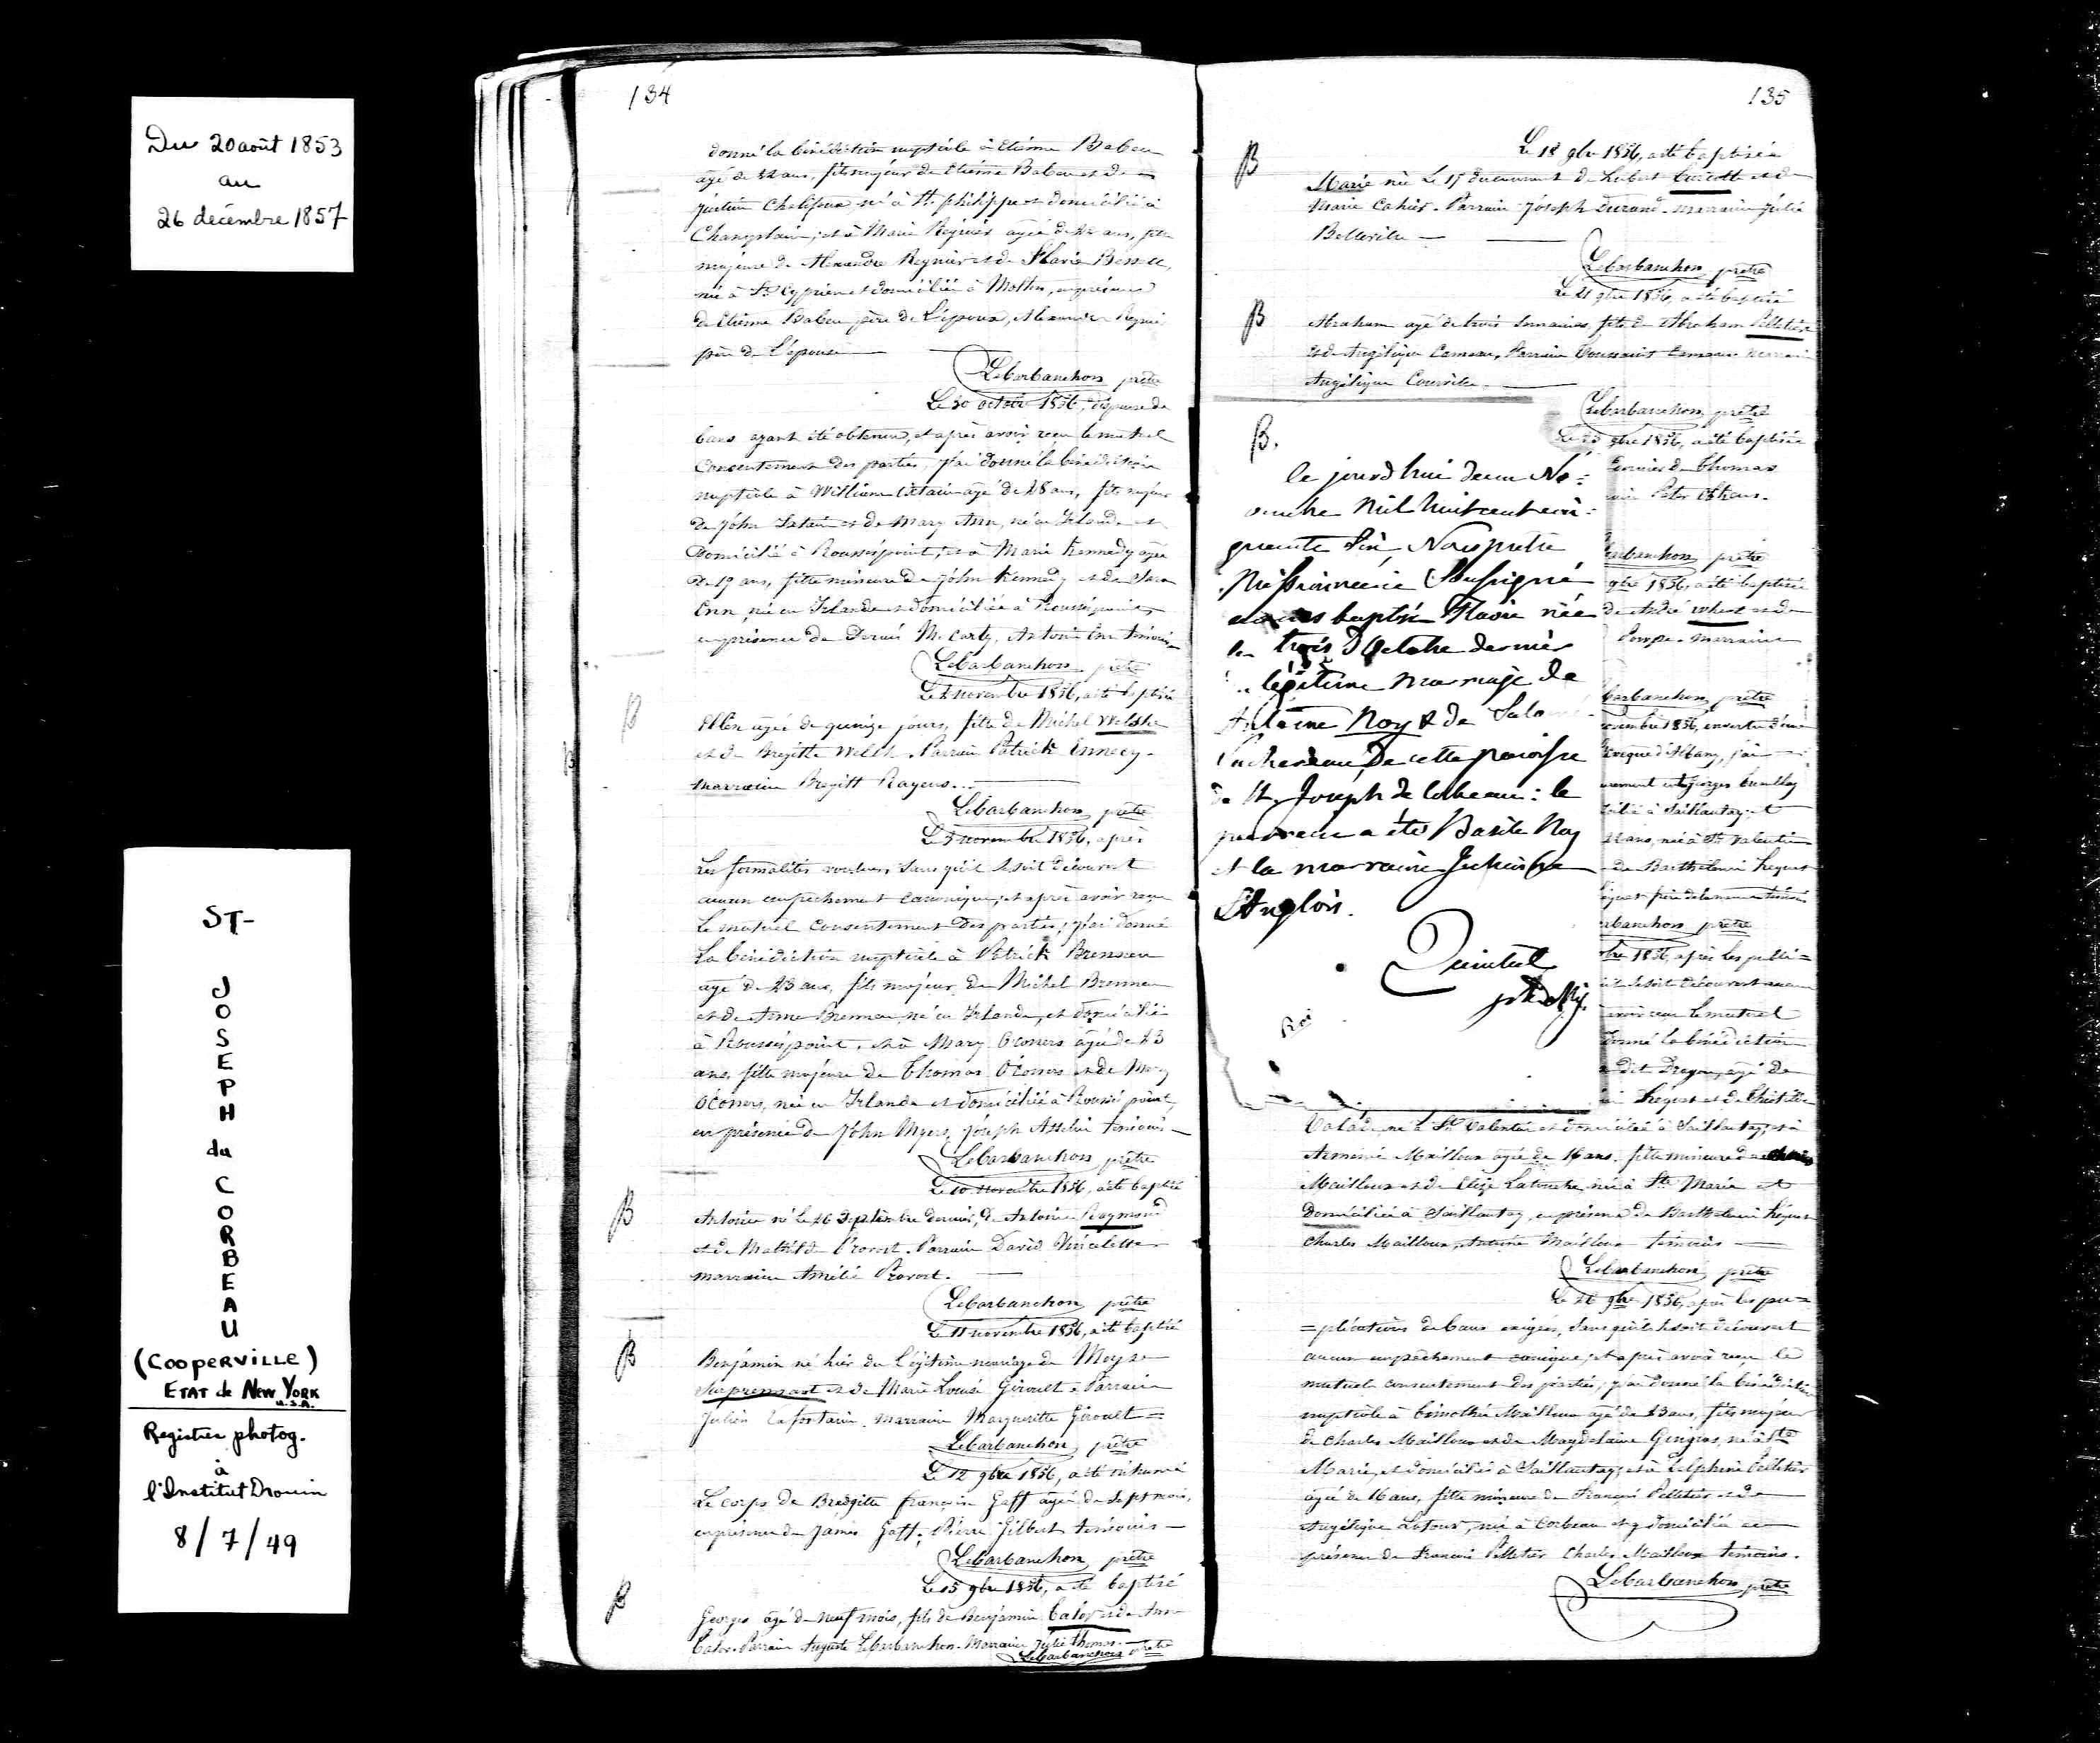 Du 20 août 1853
au
26 décembre 1857
ST-
JOSEPH
du
CORBEAU
(COOPERVILLE)
ETAT de NEW YORK
U.S.A.
Registres photog.
à
l'Institut Drouin
8/7/49
134
donné la bénédiction nuptiale à Etienne Babeu
agé de 22 ans, fils majeur de Etienne Babeu et de
Justine Chalifoux, né à St. philippe et domicilié à
Champlain; et à Marie Regnier agée de ans, fille
majeure de Alexandre Regnier et de Flavie
née à St Cyprien et domiciliée à en présence
de Etienne Babeu père de L'époux, Alexandre Regnier
père de L'épouse
Lebarbanchon prêtre
Le 30 octobre 1856, dispense de
bans ayant été obtenue, et après avoir reçu le mutuel
Consentement des parties, j'ai donné la bénédiction
nuptiale à William agé de 28 ans, fils majeur
de John et de Mary Ann, né en Irlande et
Domicilié à Rousespoint; et à Marie Kennedy agée
de 19 ans, fille mineure de John Kennedy et de Sara
née en Irlande et domiciliée à Rousespoint,
en présence de Dennis Mc. Carty, Antoine témoins
Lebarbanchon prêtre
Le 2 novembre 1856, a été baptisée
Ellen agée de quinze jours, fille de Michel Welsh
et de Bregitte Welsh. Parrain Patrick Ennecy.
marraine Bregitt Rayens.
Lebarbanchon prêtre
Le 3 novembre 1856, après
Les formalités voulues, sans qu'il se soit découvert
aucun empêchement canonique; et après avoir reçu
Le mutuel Consentement des parties; j'ai donné
La bénédiction nuptiale à Patrick Brennen
agé de 23 ans, fils majeur de Michel Brennen
et de Anne Brennen, né en Irlande, et domicilié
à Rousespoint, et à Mary O'Coners agée de 23
ans, fille majeure de Thomas O'Coners et de Mary
O'Coners, née en Irlande et domiciliée à Rousespoint,
en présence de John Myers, Joseph Asselin témoins
Lebarbanchon prêtre
B
Le 10 novembre 1856, a été baptisé
Antoine né le 26 Septembre dernier, de Antoine Raymond
et de Mathilde Provost. Parrain David Violette
marraine Amélie Provost.
Lebarbanchon prêtre
Le 11 novembre 1856, a été baptisé
B
Benjamin né hier du Légitime mariage de Moyse
Surprenant et de Marie Louise Giroult. Parrain
Julien Lafontain. marraine Marguerite Giroult
Lebarbanchon prêtre
Le 12 9bre 1856, a été inhumé
Le corps de Bredgitte françoise Gaff agée de sept mois,
en présence de James Gaff, Pierre Gilbert témoins
Lebarbanchon prêtre
Le 15 9bre 1856, a été baptisé
B
Georges agé de neuf mois, fils de Benjamin Calor et de Ann
Calor. Parrain Auguste Lebarbanchon. Marraine Julie thomas.
Lebarbanchon prêtre
135
Le 18 9bre 1856, a été baptisée
B
Marie née Le 17 du courant de Hubert Turcotte et de
Marie Cahier. Parrain Joseph Durand. marraine Julie
Belleville
Lebarbanchon prêtre
Le 21 9bre 1856, a été baptisé
B
Abraham agé de trois semaines, fils de Abraham Pelletier
et de Angélique Comeau. Parrain Toussaint Comeau. marraine
Angélique Courville
Lebarbanchon prêtre
9bre 1856, a été baptisée
B.
Ce jourd'hui deux No=
vembre Mil huit cent cin=
quante Six Nous prêtre
Missionnaire Soussigné
avons baptisé Flavie née
le trois d'Octobre dernier
légitime mariage de
Antoine Roy & de
De cette paroisse
de St. Joseph de Corbeau: le
parrain a été Basile Roy
et la marraine
L'Anglois.
Quintal
ptre Miss.
Roi
de Thomas
Peter
prêtre
9bre 1856, a été baptisé
de André et de
marraine
prêtre
novembre 1856, en vertu d'une
d'Albany, j'ai
Georges
et
22 ans, né à St Valentin
de Barthélemi
frère de la
prêtre
9bre 1856, après les publi=
se soit découvert aucun
avoir reçu le mutuel
donné la bénédiction
dit Dragon, agé de
et de
né à St Valentin et domicilié à et à
Mailloux agée de 16 ans. fille mineure de
Mailloux et de Elize Latouche, née à Ste Marie et
Domiciliée à en présence de Barthélemi
Charles Mailloux, Antoine Mailloux témoins
Lebarbanchon prêtre
Le 26 9bre 1856, après les pu=
=plications de bans exigées, sans qu'il se soit découvert
aucun empêchement canonique; et après avoir reçu le
mutuel consentement des parties, j'ai donné la bénédiction
nuptiale à Timothé Mailloux agé de 23 ans, fils majeur
de Charles Mailloux et de Magdelaine Gingras, né à Ste
Marie, et domicilié à et à Delphine Pelletier
agée de 16 ans, fille mineure de François Pelletier et de
Angélique Latour, née à Corbeau et y domiciliée en
présence de François Pelletier Charles Mailloux témoins.
Lebarbanchon prêtre